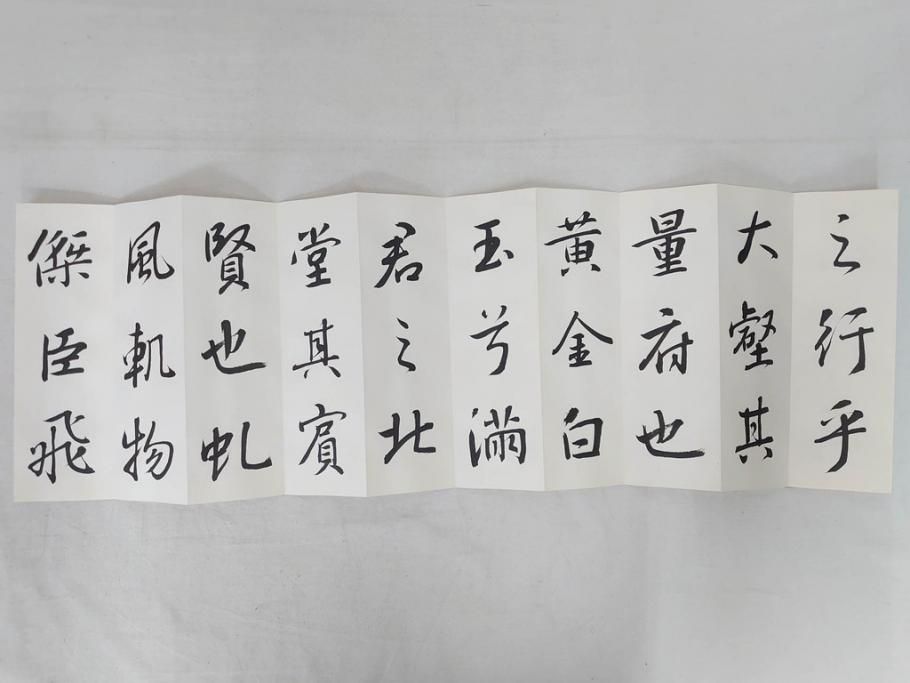 之行乎
大壑其
量府也
黄金白
玉兮满
君之北
堂其賓
賢也虬
風軌物
傑臣飛